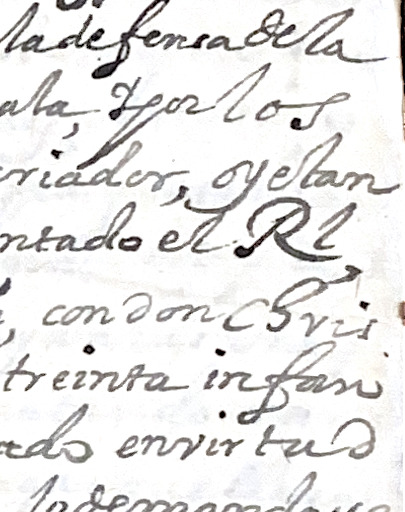 la defensa de la
ala, y por los
criador, oyelan
ntado el Rl
con don Chris
treinta infan
ado en virtud
lo demanda